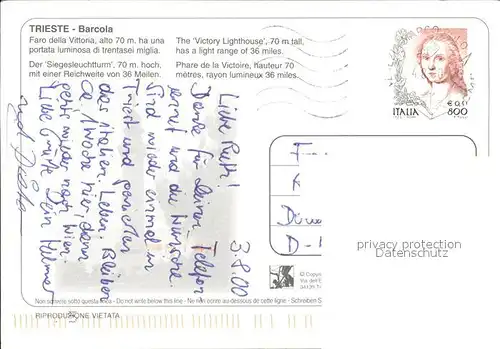 TRIESTE - Barcola
Faro della Vittoria, alto 70 m. ha una
portata luminosa di trentasei miglia.
Der 'Siegesleuchtturm', 70 m. hoch,
mit einer Reichweite von 36 Meilen.
The 'Victory Lighthouse', 70 m tall,
has a light range of 36 miles.
Phare de la Victoire, hauteur 70
mètres, rayon lumineux 36 miles.
ITALIA
800
3.8.00
Liebe Ruth!
Danke für Deinen Telefon
anruf und die Wünsche.
Sind wieder einmal in
Triest und genießen
das italien. Leben. Bleiben
ca. 1 Woche hier, dann
geht's wieder nach Wien.
Liebe Grüße Dein Helmut
und
D-
privacy protection
Datenschutz
© Copyr
Non scrivere sotto questa linea - Do not write below this line - Ne rien écrire au-dessous de cette ligne - Schreiben S
RIPRODUZIONE VIETATA